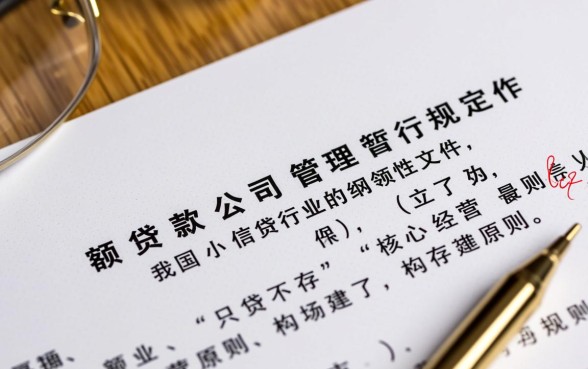 额贷款公司管理暂行规定作
我国小信贷行业的纲领性文件，
保），（立了
、“只贷不存”“核心经营 最则责
额业、营原则、构场建了，构存建原则。
、），
规则